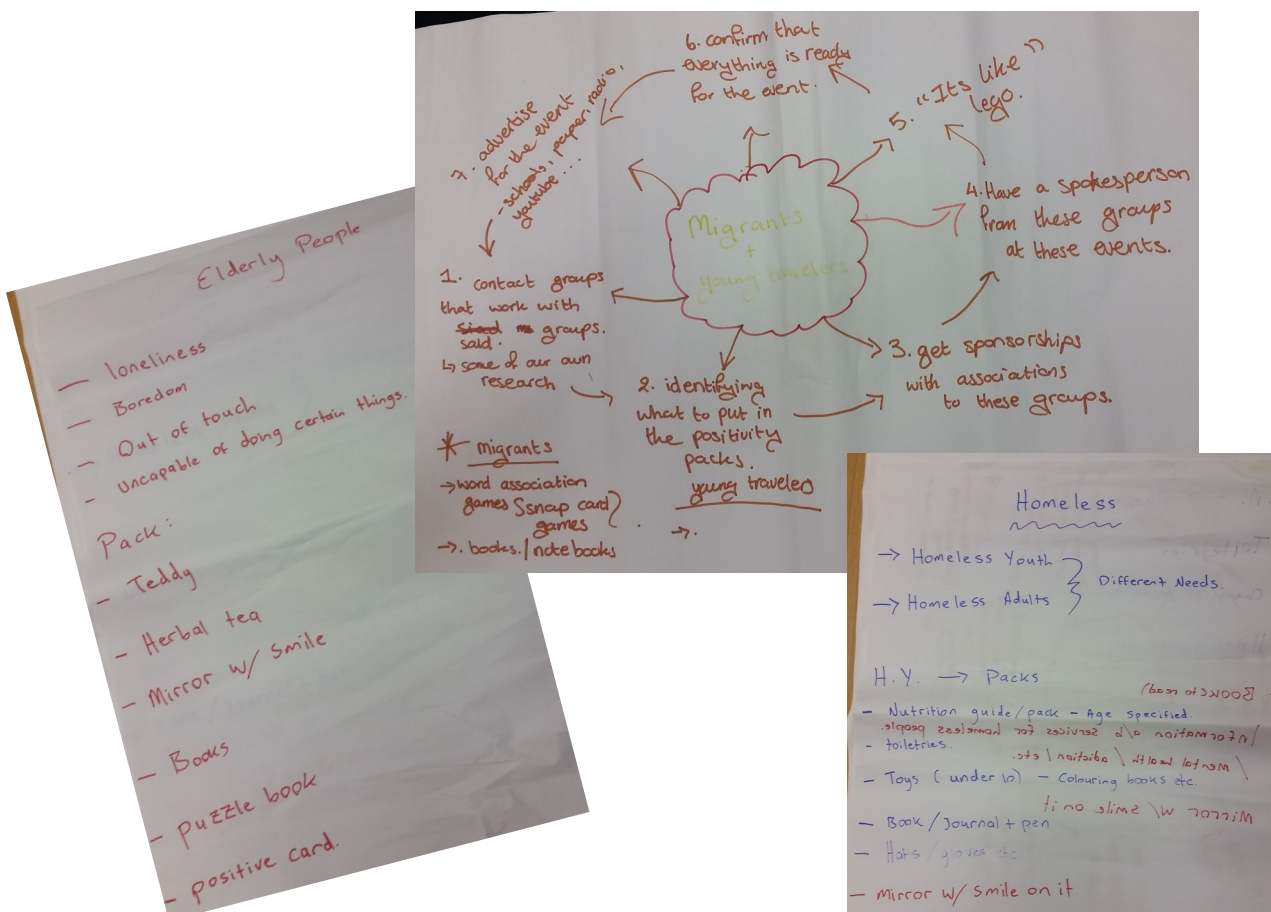 Elderly People
— loneliness
— Boredom
— Out of touch
- uncapable of doing certain things.
Pack:
- Teddy
- Herbal tea
- Mirror w/ Smile
- Books
- puzzle book
- positive card.
Migrants
+
young travelers
1. contact groups
that work with
groups.
said.
↳ some of our own
research
2. identifying
what to put in
the positivity
packs.
young traveled
→.
3. get sponsorships
with associations
to these groups.
4. Have a spokesperson
from these groups
at these events.
5. "Its like"
lego.
6. confirm that
everything is ready
for the event.
7. advertise
for the event
- schools, paper, radio,
youtube ...
* migrants
→ word association
games Ssnap card
games
→. books./notebooks
Homeless
→ Homeless Youth
→ Homeless Adults
Different Needs.
H.Y. → Packs
Books (to read)
- Nutrition guide/pack - Age specified.
Information a/b services for homeless people.
- toiletries.
/ mental health / adiction / etc.
- Toys (under 10) - Colouring books etc.
Mirror w/ smile on it
- Book / Journal + pen
- Hats / gloves etc
- Mirror w/ Smile on it